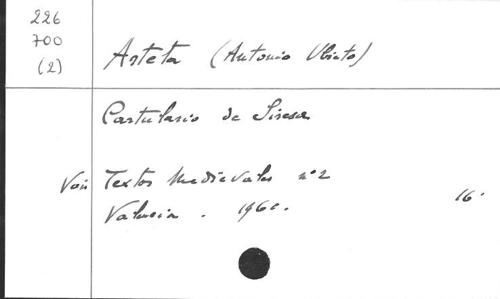 226
700
(2)
Arteta (Antonio Ubieto)
Cartulario de Siresa
Voir Textos Medievales nº 2
Valencia. 1960. 16.